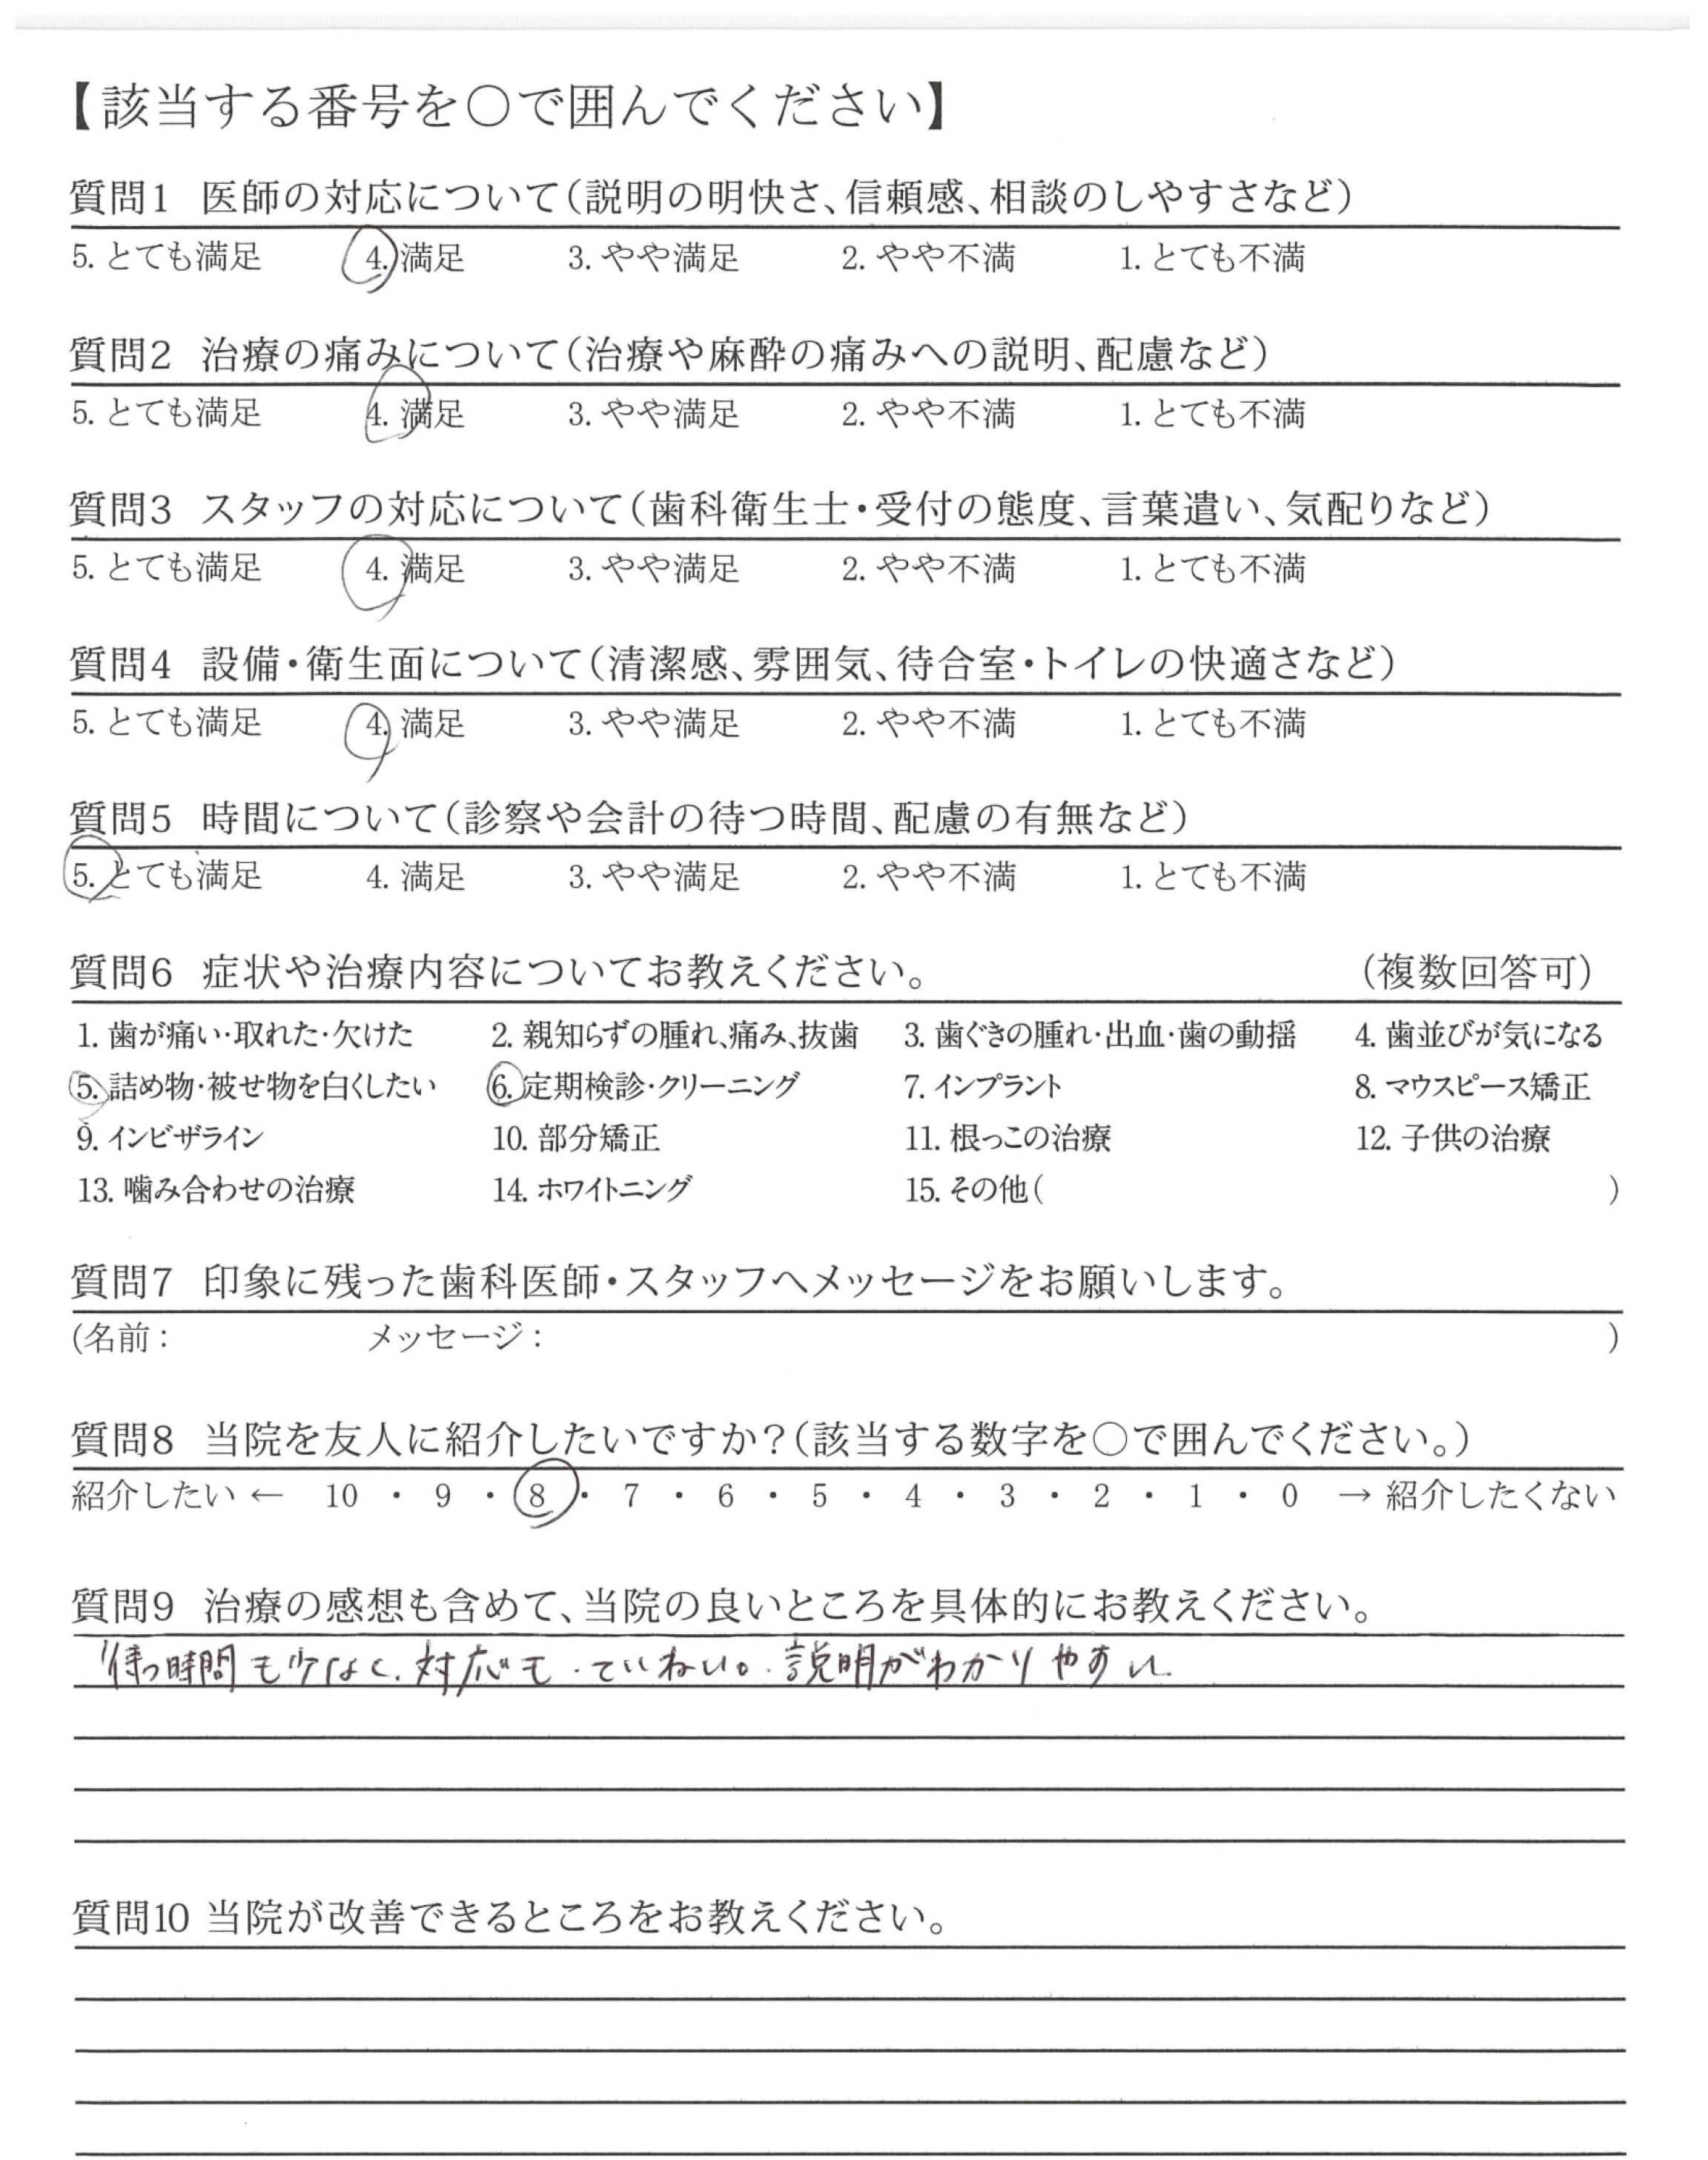 【該当する番号を○で囲んでください】
質問1 医師の対応について(説明の明快さ、信頼感、相談のしやすさなど)
5. とても満足 4. 満足 3. やや満足 2. やや不満 1. とても不満
質問2 治療の痛みについて(治療や麻酔の痛みへの説明、配慮など)
5. とても満足 4. 満足 3. やや満足 2. やや不満 1. とても不満
質問3 スタッフの対応について(歯科衛生士・受付の態度、言葉遣い、気配りなど)
5. とても満足 4. 満足 3. やや満足 2. やや不満 1. とても不満
質問4 設備・衛生面について(清潔感、雰囲気、待合室・トイレの快適さなど)
5. とても満足 4. 満足 3. やや満足 2. やや不満 1. とても不満
質問5 時間について(診察や会計の待つ時間、配慮の有無など)
5. とても満足 4. 満足 3. やや満足 2. やや不満 1. とても不満
質問6 症状や治療内容についてお教えください。 (複数回答可)
1. 歯が痛い・取れた・欠けた 2. 親知らずの腫れ、痛み、抜歯 3. 歯ぐきの腫れ・出血・歯の動揺 4. 歯並びが気になる
5. 詰め物・被せ物を白くしたい 6. 定期検診・クリーニング 7. インプラント 8. マウスピース矯正
9. インビザライン 10. 部分矯正 11. 根っこの治療 12. 子供の治療
13. 噛み合わせの治療 14. ホワイトニング 15. その他( )
質問7 印象に残った歯科医師・スタッフへメッセージをお願いします。
(名前: メッセージ: )
質問8 当院を友人に紹介したいですか?(該当する数字を○で囲んでください。)
紹介したい ← 10 ・ 9 ・ 8 ・ 7 ・ 6 ・ 5 ・ 4 ・ 3 ・ 2 ・ 1 ・ 0 → 紹介したくない
質問9 治療の感想も含めて、当院の良いところを具体的にお教えください。
待つ時間も少なく、対応も、ていねい。説明がわかりやすい
質問10 当院が改善できるところをお教えください。